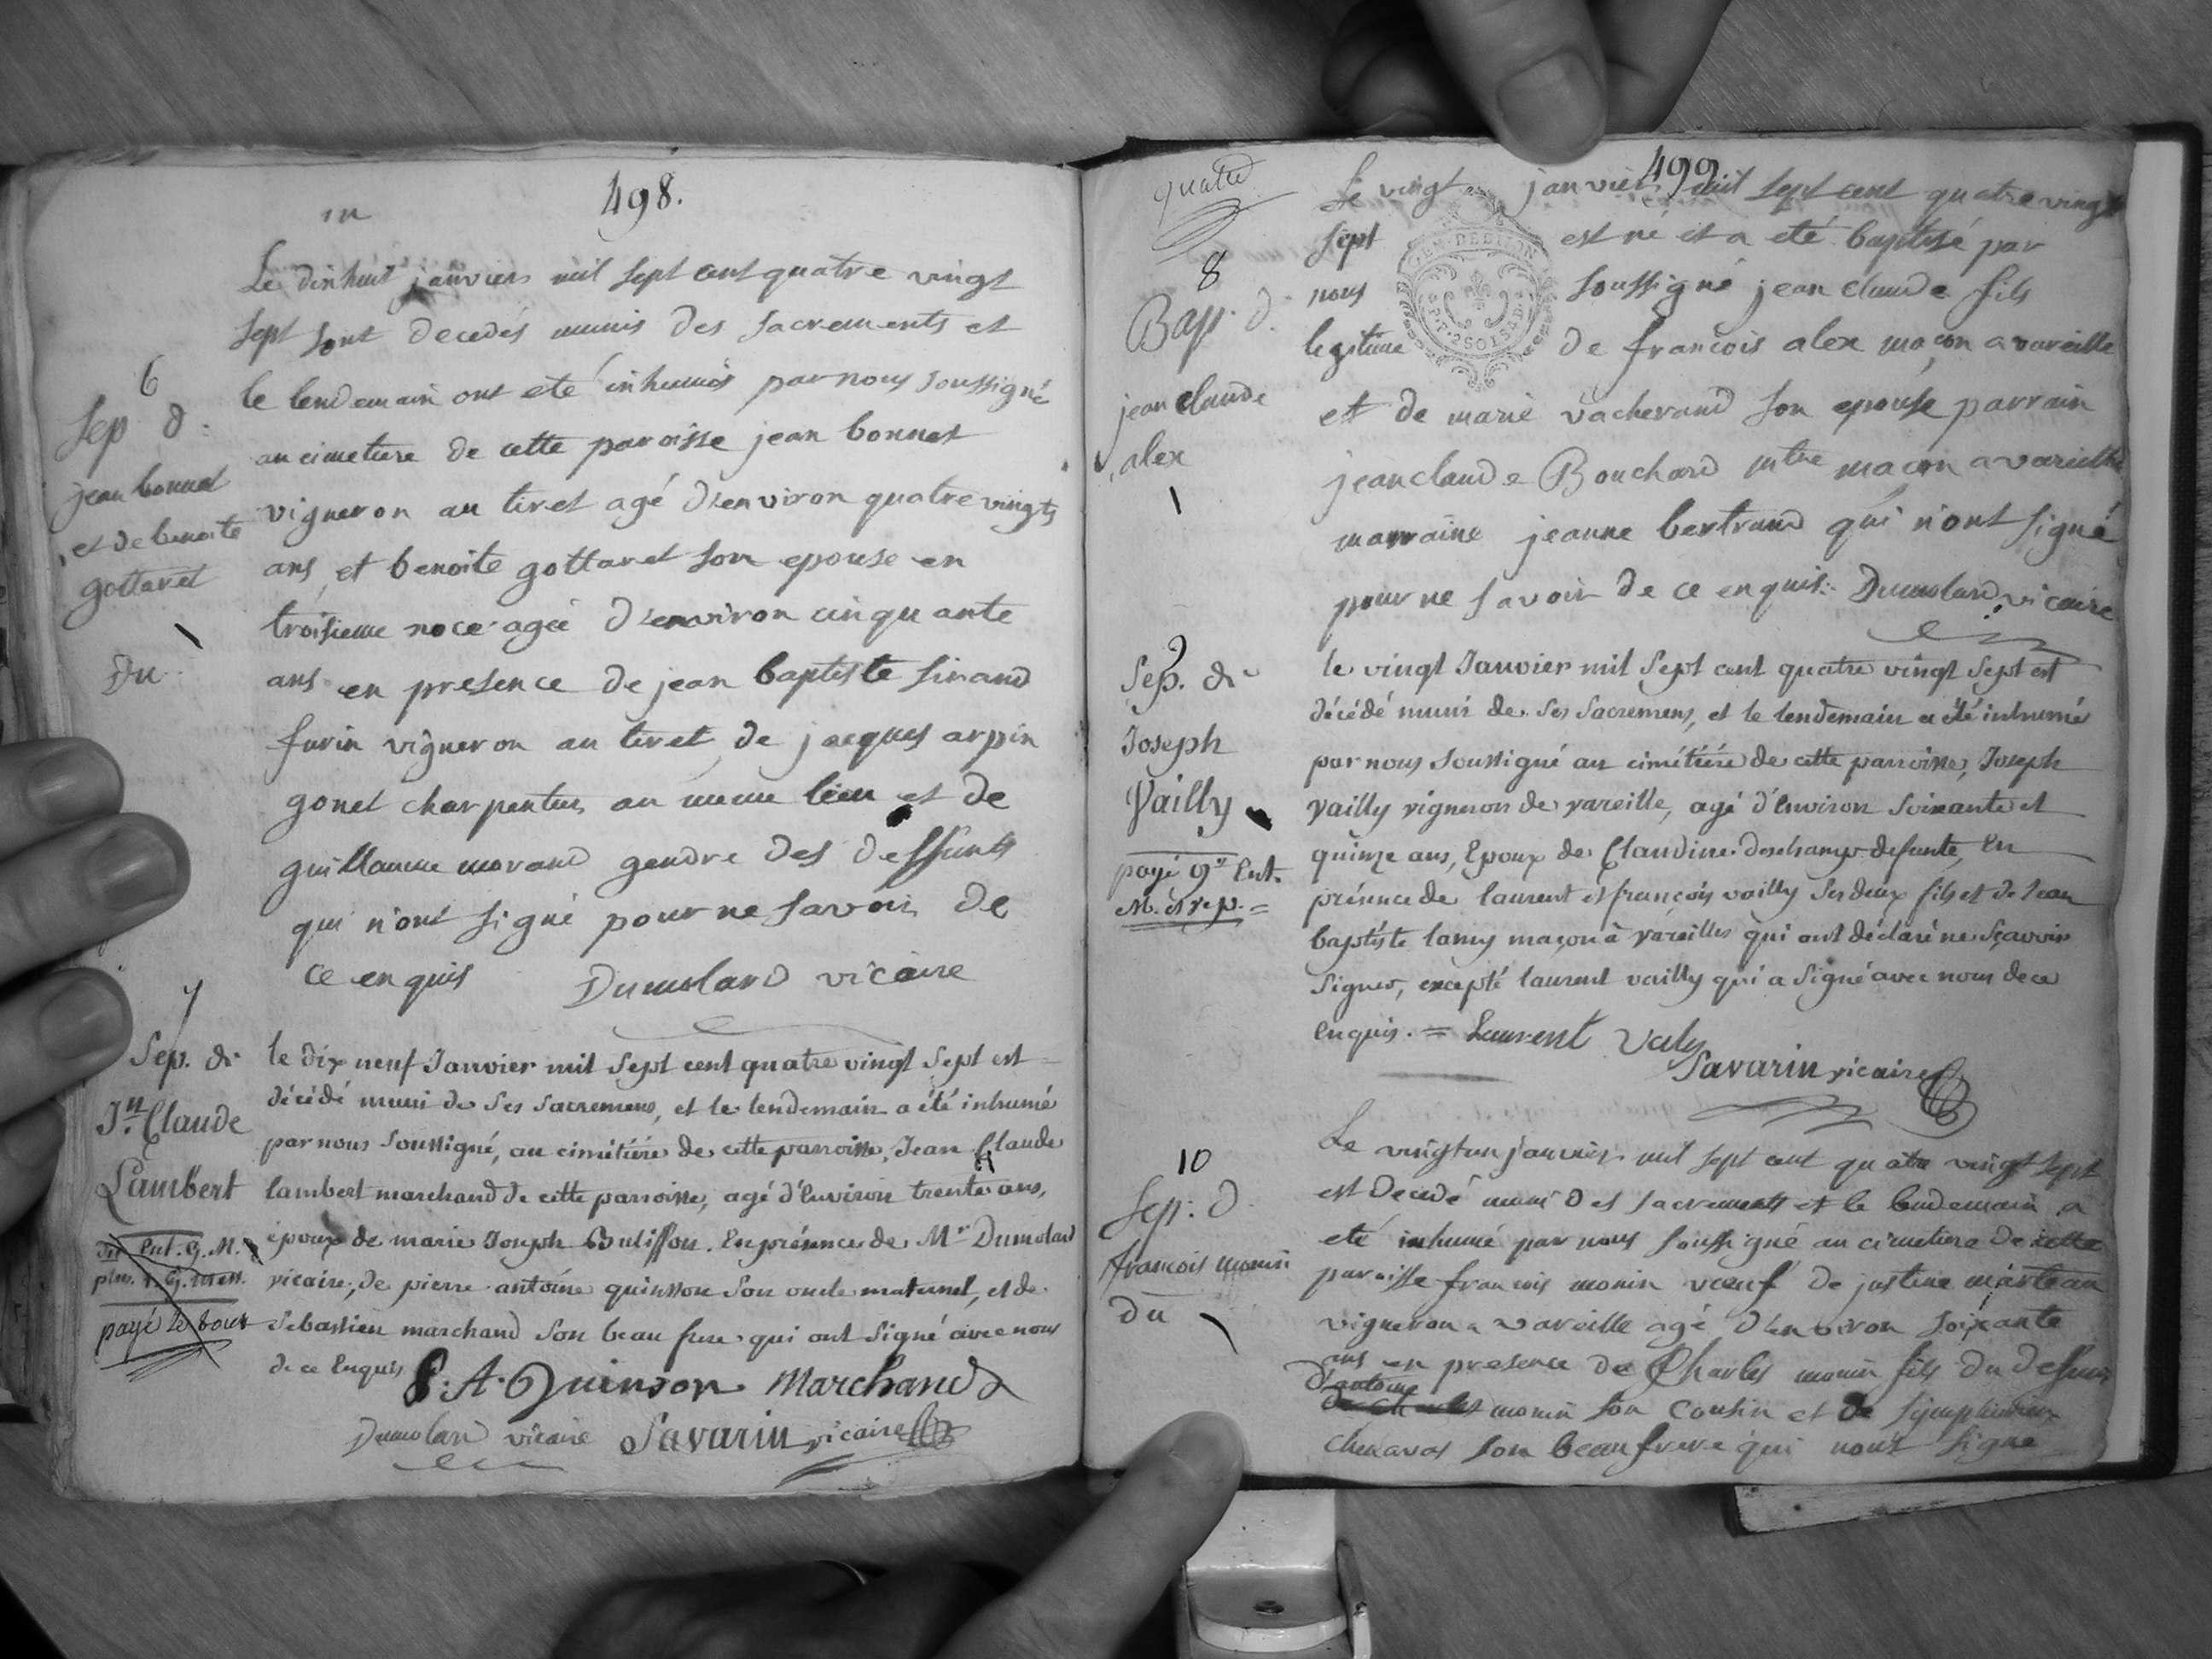 498.
m
Le dixhuit janvier mil sept cent quatre vingt
sept sont decedés munis des sacrements et
le lendemain ont eté inhumés par nous soussigné
au cimetiere de cette paroisse jean bonnet
vigneron au tiret agé d'environ quatre vingts
ans et benoite gottaret son epouse en
troisieme noce agée d'environ cinquante
ans en presence de jean baptiste sirand
furin vigneron au tiret, de jacques arpin
gonet charpentier au meme lieu et de
guillaume morand gendre des deffunts
qui n'ont signé pour ne savoir de
ce enquis Dumolard vicaire
6
Sep. d.
jean bonnet
et de benoite
gottaret
Du
7
Sep. de
Jn. Claude
Lambert
Ent. G. M.
plus. 1. G. mess.
payé le tout
le dix neuf Janvier mil sept cent quatre vingt sept est
décédé muni de ses sacremens, et le lendemain a été inhumé
par nous soussigné, au cimétiére de cette parroisse, Jean Claude
lambert marchand de cette parroisse, agé d'environ trente ans,
époux de marie Joseph Buliffon. En présence de Mr Dumolard
vicaire, de pierre antoine quinson son oncle maternel, et de
Sebastien marchand son beau frere qui ont signé avec nous
de ce Enquis P. A. Quinson Marchand
Dumolard vicaire Savarin vicaire
499.
quatre
8
Bap. d.
jean claude
alex
Le vingt janvier mil sept cent quatre vingt
sept est né et a eté baptisé par
nous soussigné jean claude fils
legitime de francois alex maçon a vareille
et de marie vacherand son epouse parrain
jean claude Bouchard mtre maçon a vareille
marraine jeanne bertrand qui n'ont signé
pour ne savoir de ce enquis. Dumolard vicaire
GEN. DE DIJON
9
Sep. de
Joseph
Vailly
payé 9# Ent.
M. et r.p. =
le vingt Janvier mil sept cent quatre vingt sept est
décédé muni de ses sacremens, et le lendemain a été inhumé
par nous soussigné au cimétiére de cette parroisse, Joseph
vailly vigneron de vareille, agé d'environ soixante et
quinze ans, Epoux de Claudine deschamps defunte, En
présence de laurent et françois vailly ses deux fils et de Jean
baptiste lamy maçon à vareilles qui ont déclaré ne sçavoir
signer, excepté laurent vailly qui a signé avec nous de ce
enquis. = Laurent Valy
Savarin vicaire
10
Sep: d
francois monin
du
Le vingt un janvier mil sept cent quatre vingt sept
est decedé muni des sacrements et le lendemain a
eté inhumé par nous soussigné au cimetiere de cette
paroisse francois monin vœuf de justine marteau
vigneron a vareille agé d'environ soixante
ans en presence de Charles monin fils du defunt
d'antoine
de Charles monin son cousin et de symphorien
chenavas son beau frere qui n'ont signé